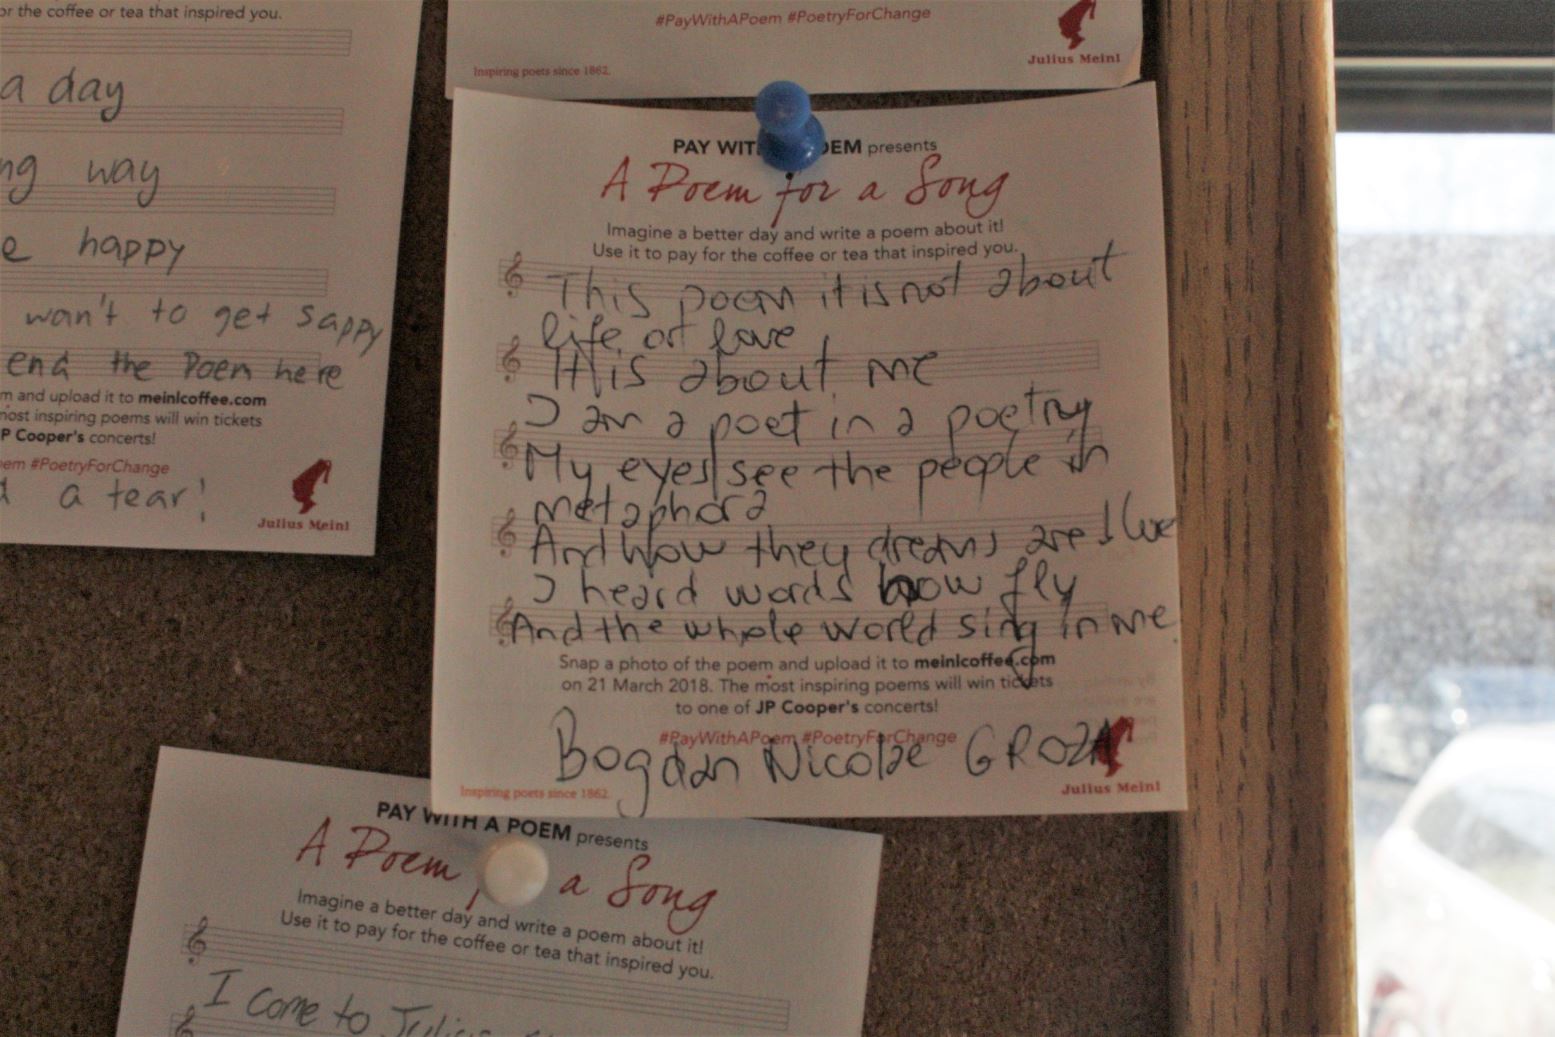 or the coffee or tea that inspired you.
a day
ng way
e happy
wan't to get sappy
end the Poem here
m and upload it to meinlcoffee.com
most inspiring poems will win tickets
P Cooper's concerts!
oem #PoetryForChange
a tear!
Julius Meinl
#PayWithAPoem #PoetryForChange
Inspiring poets since 1862.
Julius Meinl
PAY WITH A POEM presents
A Poem for a Song
Imagine a better day and write a poem about it!
Use it to pay for the coffee or tea that inspired you.
This poem it is not about
life or love
This about me
I am a poet in a poetry
My eyes see the people in
metaphora
And how they dreams are I live
I heard words how fly
And the whole world sing in me.
Snap a photo of the poem and upload it to meinlcoffee.com
on 21 March 2018. The most inspiring poems will win tickets
to one of JP Cooper's concerts!
#PayWithAPoem #PoetryForChange
Bogdan Nicolae GROZA
Inspiring poets since 1862.
Julius Meinl
PAY WITH A POEM presents
A Poem a Song
Imagine a better day and write a poem about it!
Use it to pay for the coffee or tea that inspired you.
I come to Julius